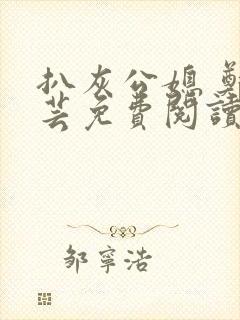 扒灰公媳 鄭
芸免費閱讀
邹寧浩